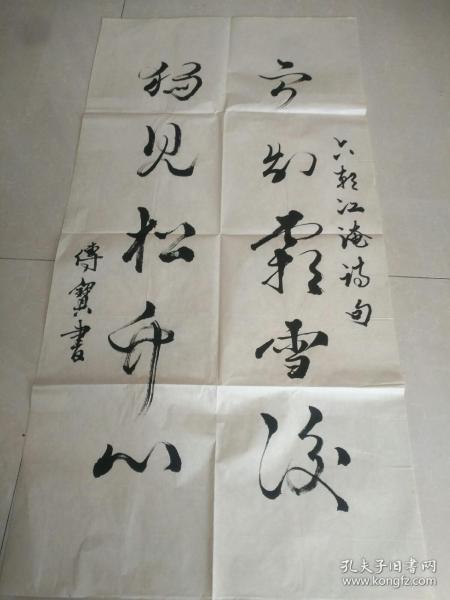 宁知霜雪後
独见松竹心
六朝江淹诗句
傅寶書
孔夫子旧书网
www.kongfz.com